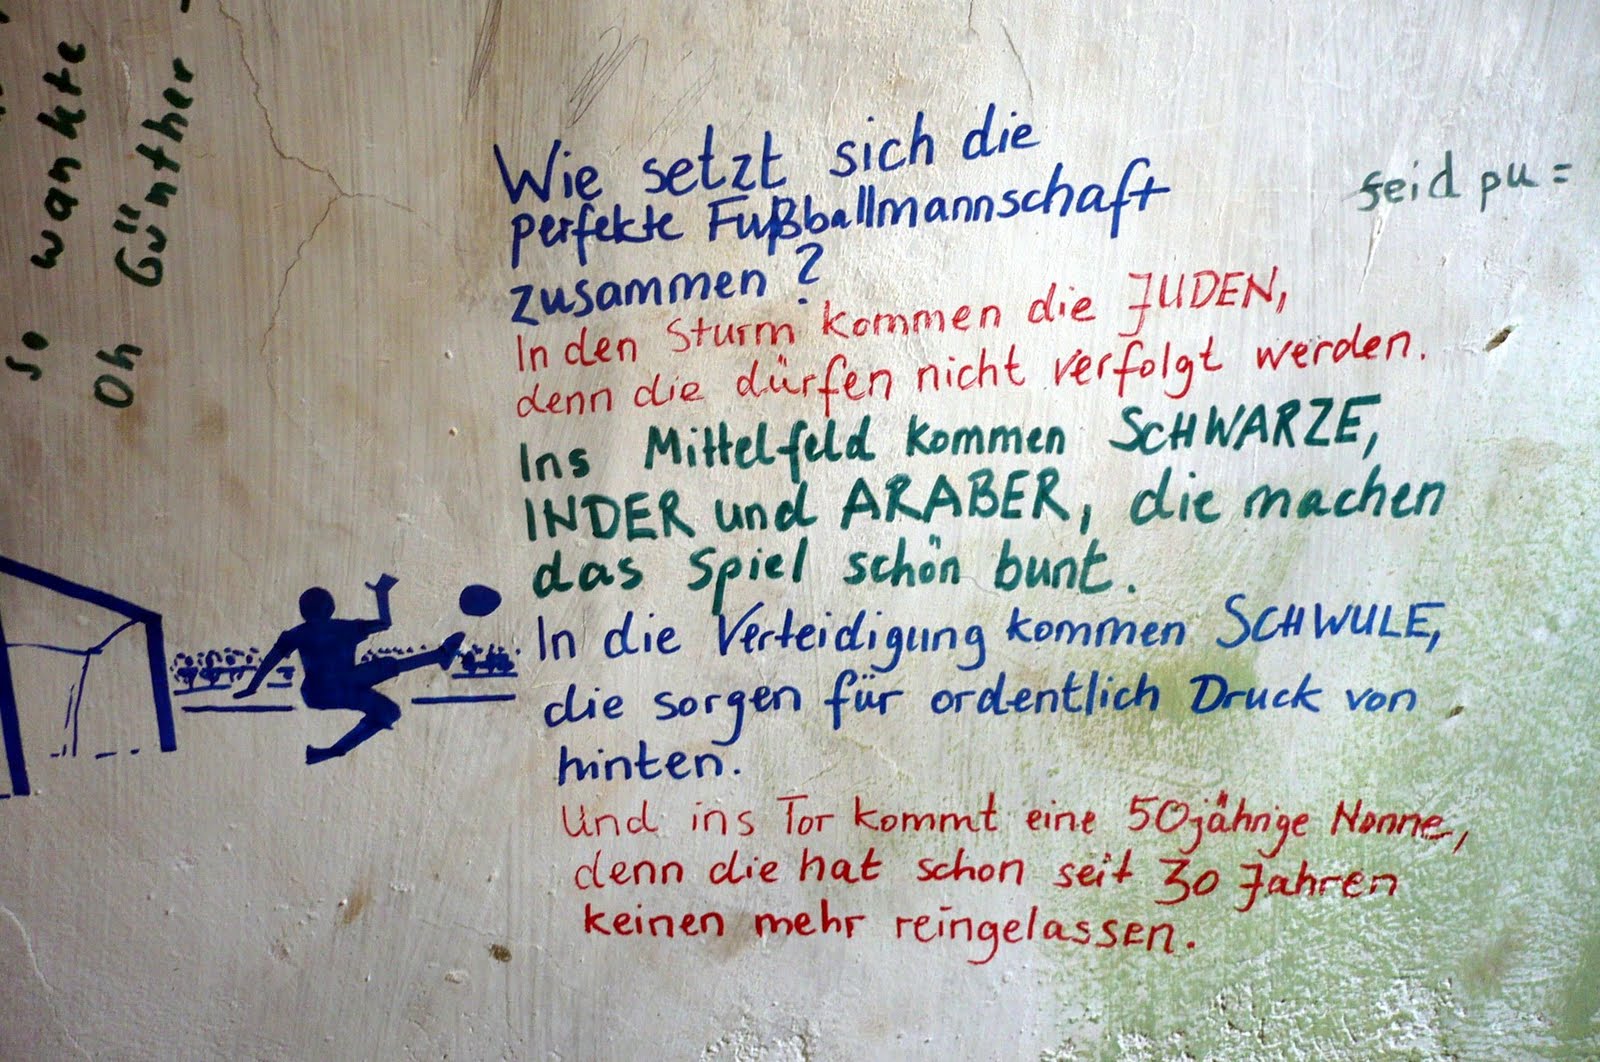 So wankte
Oh Günther -
Wie setzt sich die
perfekte Fußballmannschaft
zusammen?
In den Sturm kommen die JUDEN,
denn die dürfen nicht verfolgt werden.
Ins Mittelfeld kommen SCHWARZE,
INDER und ARABER, die machen
das Spiel schön bunt.
In die Verteidigung kommen SCHWULE,
die sorgen für ordentlich Druck von
hinten.
Und ins Tor kommt eine 50jährige Nonne,
denn die hat schon seit 30 Jahren
keinen mehr reingelassen.
seid pu=